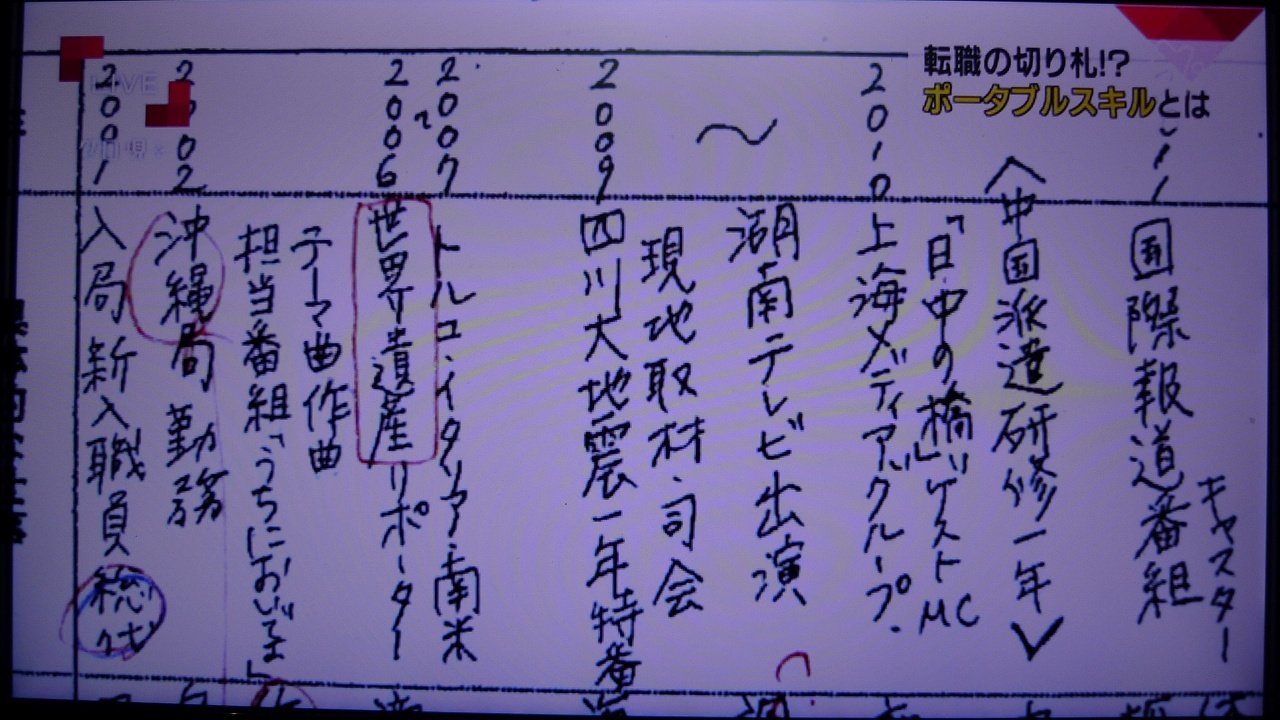 転職の切り札!?
ポータブルスキルとは
LIVE
2001
入局新入職員総代
2002
沖縄局勤務
担当番組「うちにおいでよ」
テーマ曲作曲
2006〜
世界遺産リポーター
2007
トルコ・イタリア・南米
2009
四川大地震一年特番
現地取材・司会
〜
湖南テレビ出演
2010
上海メディアグループ
「日中の橋」ゲストMC
〈中国派遣研修一年〉
国際報道番組
キャスター